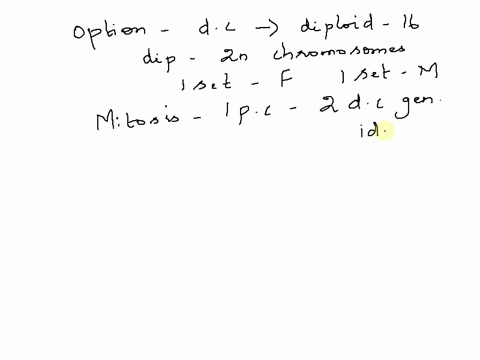 Option - d.c → diploid - 16
dip - 2n chromosomes
1 set - F 1 set - M
Mitosis - 1 p.c - 2 d.c gen.
id.